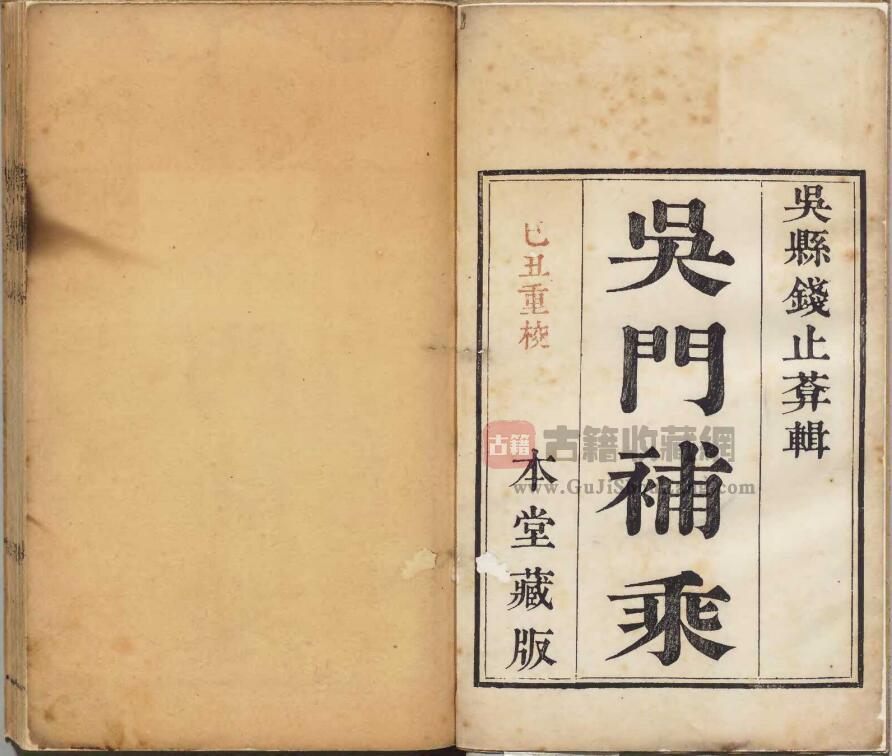 吳縣錢止葊輯
吳門補乘
己丑重校
本堂藏版
古籍
古籍收藏網